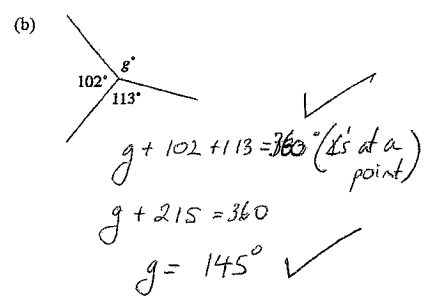 (b)
g°
102°
113°
g + 102 + 113 = 360° (∡s' at a
point)
g + 215 = 360
g = 145°